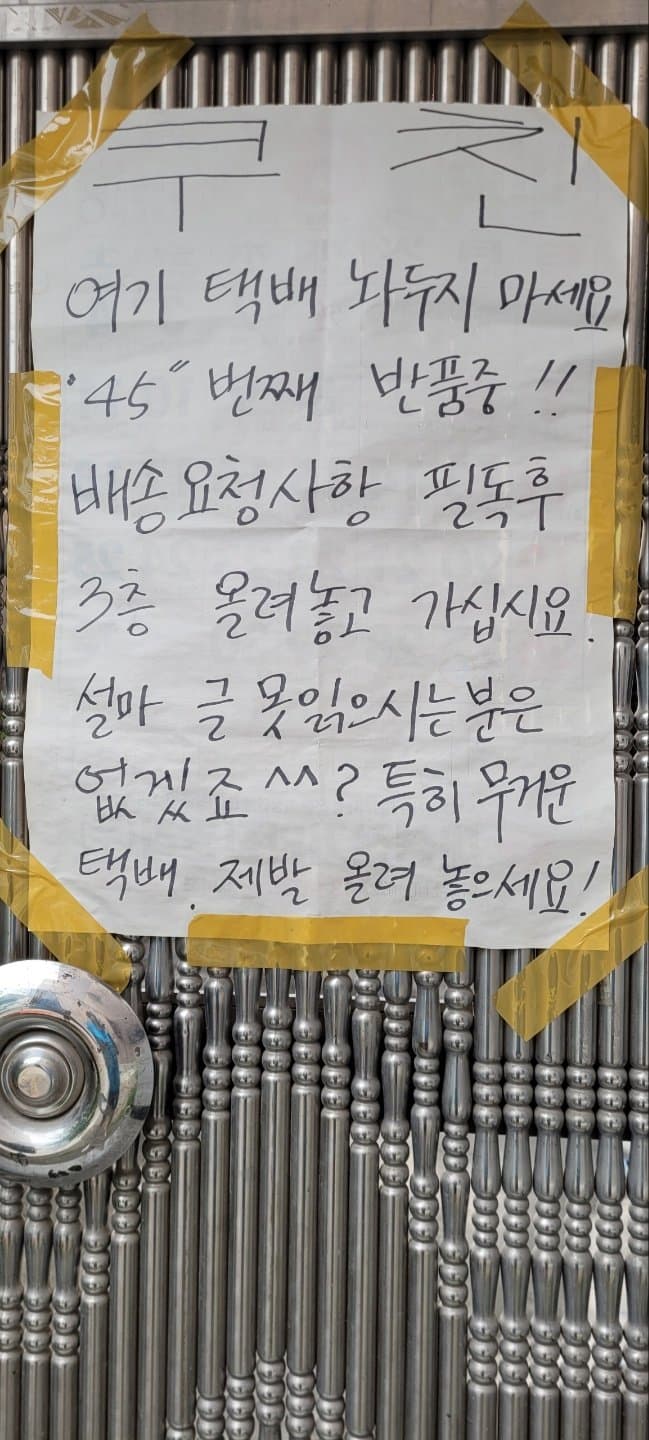 쿠 친
여기 택배 놔두지 마세요
"45" 번째 반품중 !!
배송요청사항 필독후
3층 올려놓고 가십시요.
설마 글 못읽으시는분은
없겠죠 ^^? 특히 무거운
택배. 제발 올려 놓으세요!